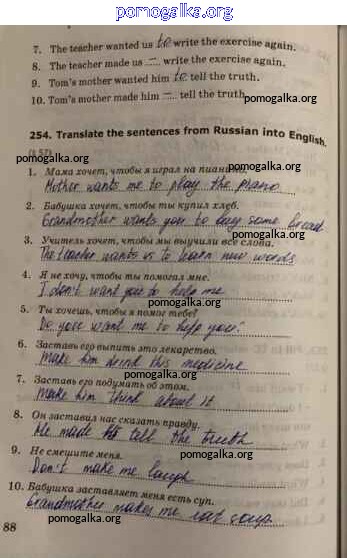 pomogalka.org
7. The teacher wanted us to write the exercise again.
8. The teacher made us — write the exercise again.
9. Tom's mother wanted him to tell the truth.
10. Tom's mother made him — tell the truth.
pomogalka.org
254. Translate the sentences from Russian into English.
pomogalka.org
1. Мама хочет, чтобы я играл на пианино.
Mother wants me to play the piano
pomogalka.org
2. Бабушка хочет, чтобы ты купил хлеб.
Grandmother wants you to buy some bread
pomogalka.org
3. Учитель хочет, чтобы мы выучили все слова.
The teacher wants us to learn new words
pomogalka.org
4. Я не хочу, чтобы ты помогал мне.
I don't want you to help me
pomogalka.org
5. Ты хочешь, чтобы я помог тебе?
Do you want me to help you?
pomogalka.org
6. Заставь его выпить это лекарство.
Make him drink this medicine
pomogalka.org
7. Заставь его подумать об этом.
Make him think about it
pomogalka.org
8. Он заставил нас сказать правду.
He made us tell the truth
pomogalka.org
9. Не смешите меня.
Don't make me laugh
pomogalka.org
10. Бабушка заставляет меня есть суп.
Grandmother makes me eat soup
pomogalka.org
88
pomogalka.org